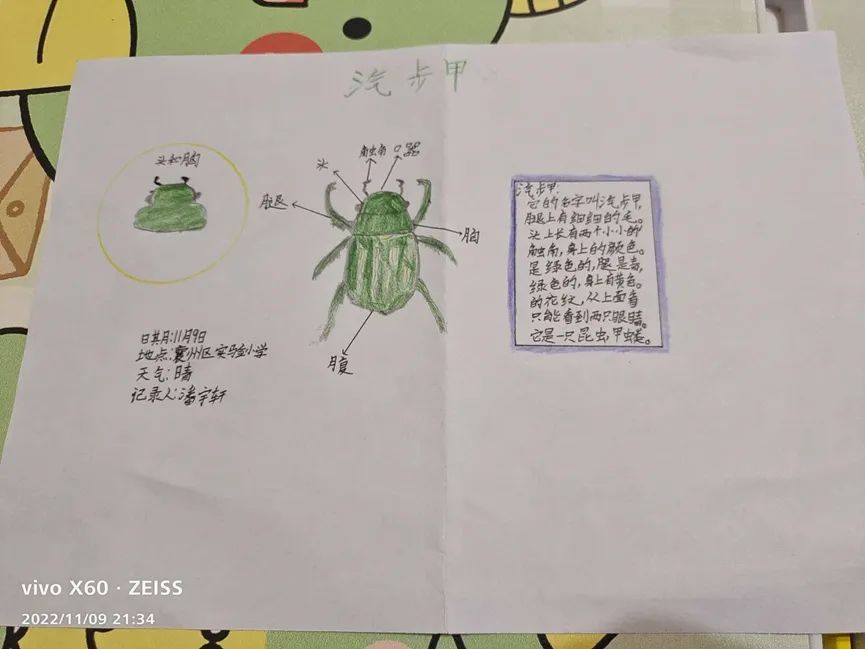 汽步甲
头和胸
头
触角
口器
腿
胸
腹
日期:11月9日
地点:襄州区实验小学
天气:晴
记录人:潘宇轩
汽步甲:
它的名字叫汽步甲,
腿上有细细的毛。
头上长有两个小小的
触角,身上的颜色。
是绿色的,腿是青,
绿色的,身上有黄色。
的花纹,从上面看
只能看到两只眼睛。
它是一只昆虫,甲虫类。
vivo X60 · ZEISS
2022/11/09 21:34